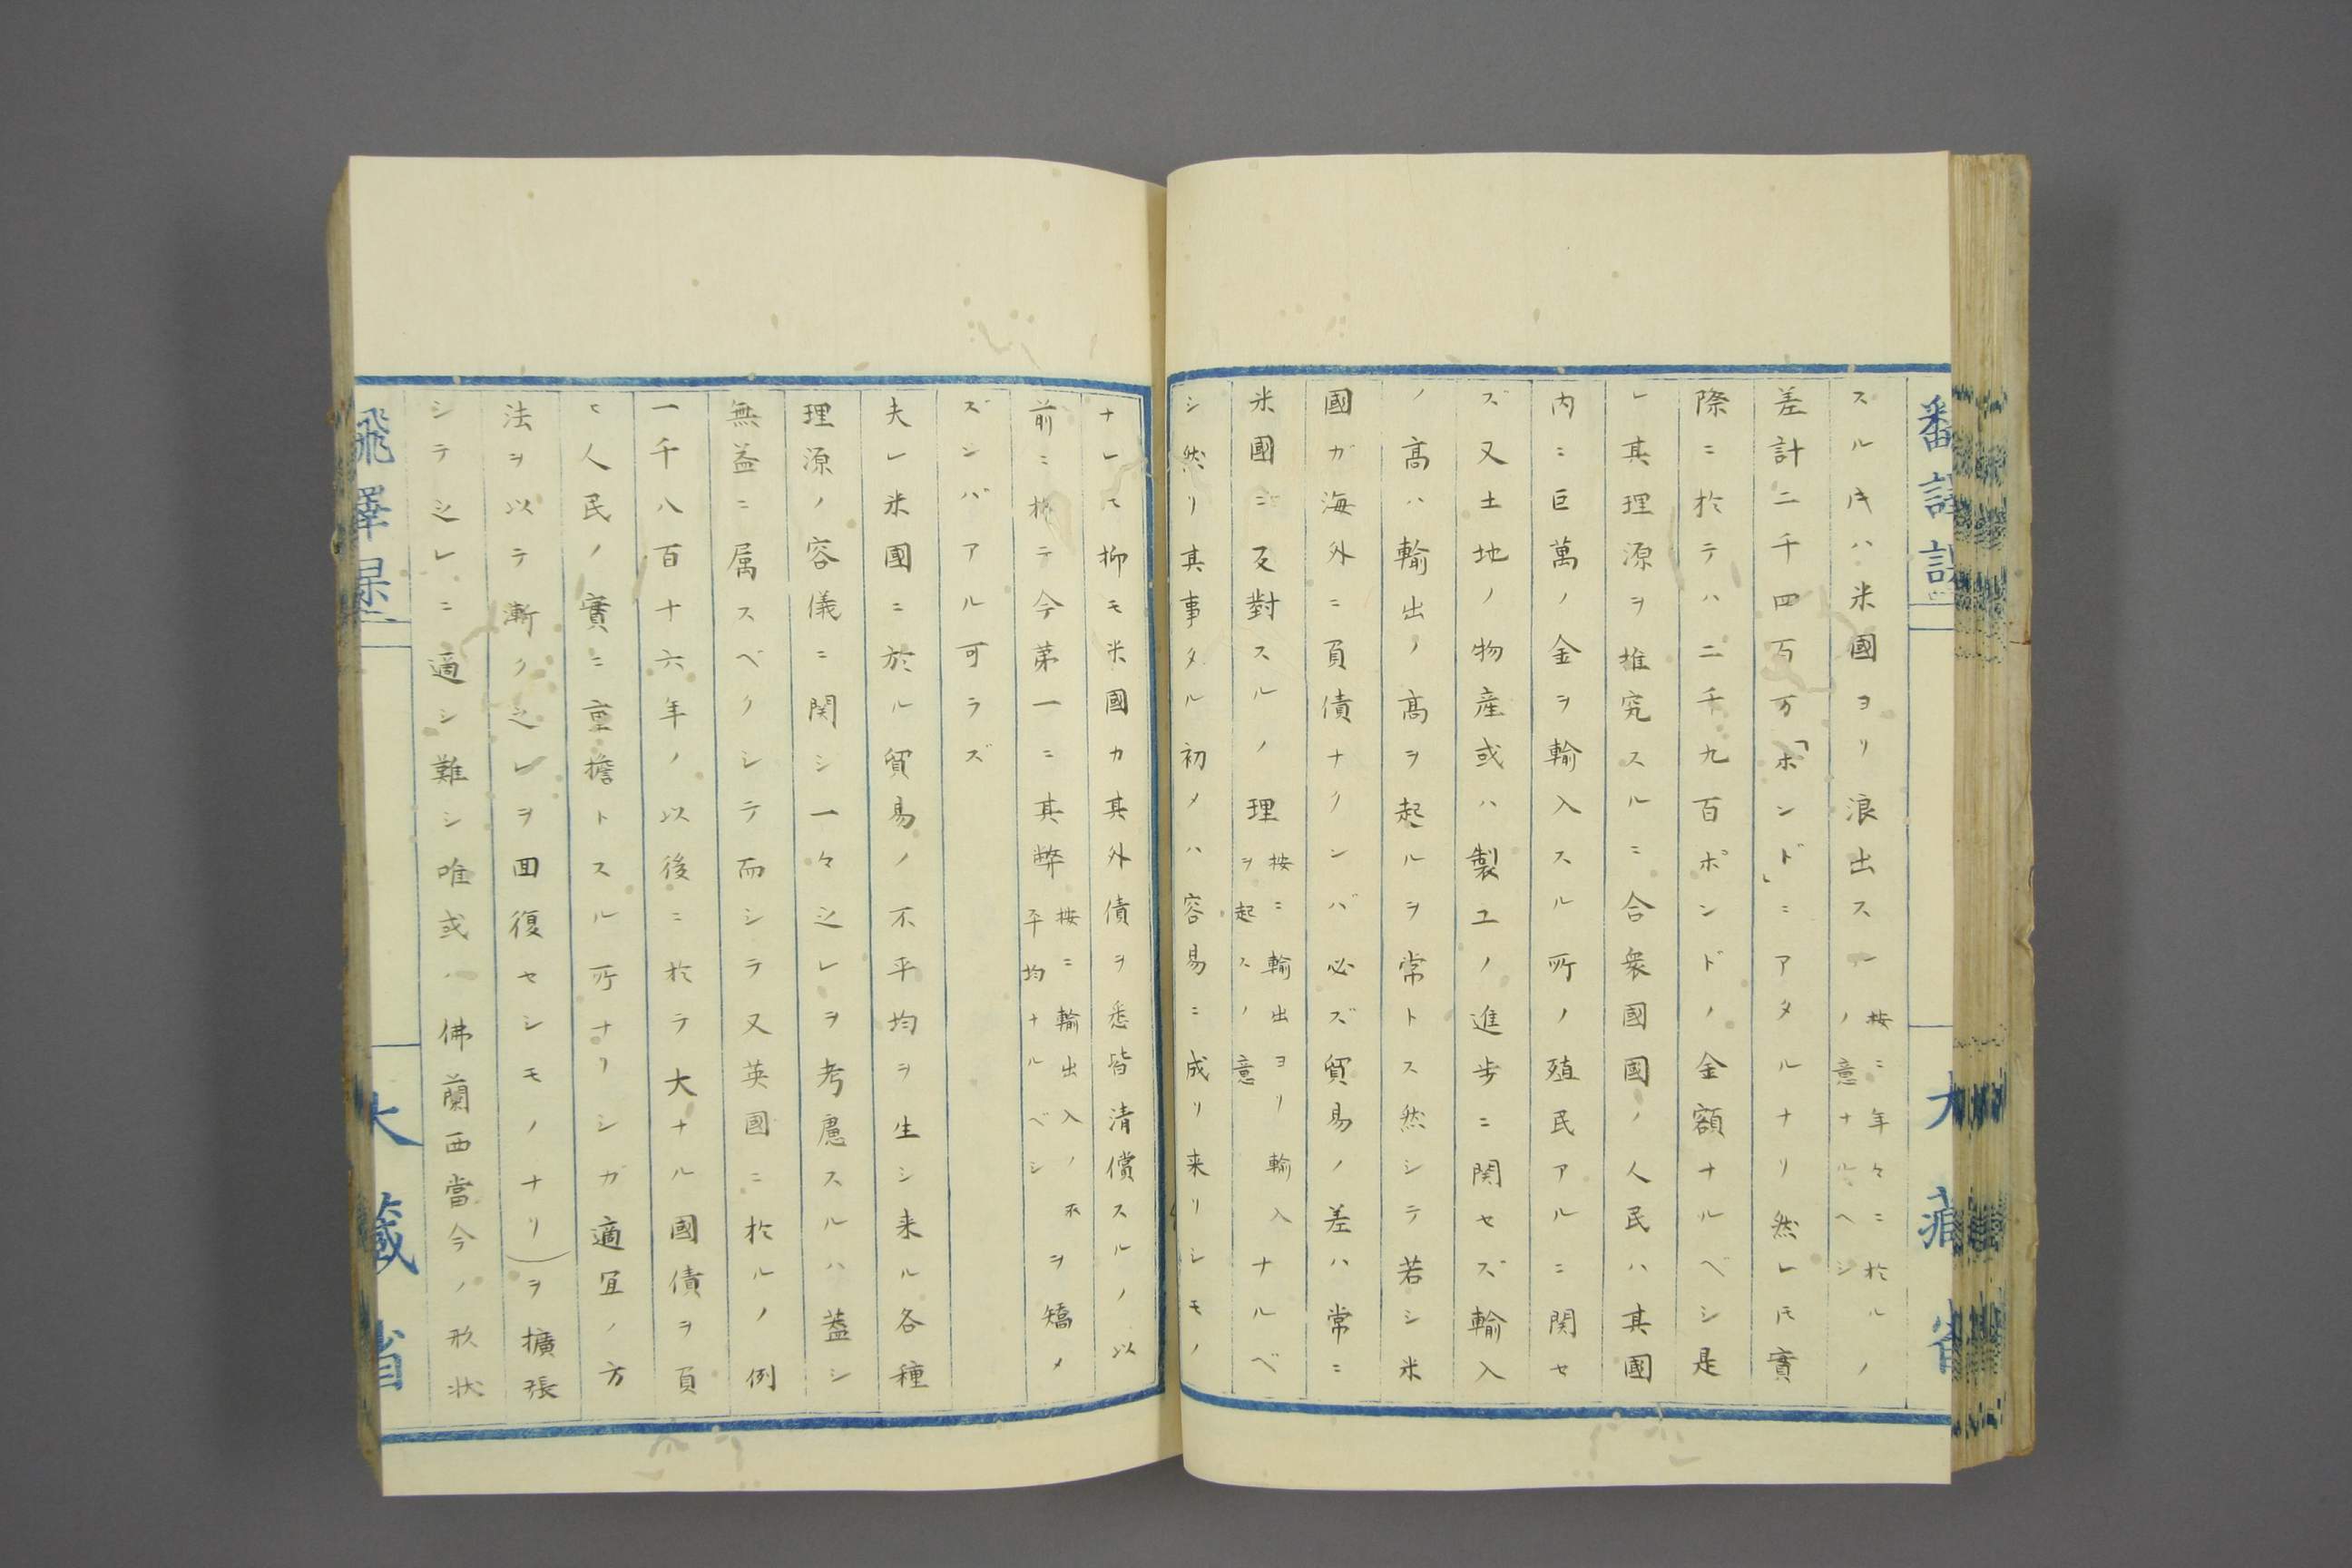 スル片ハ米國ヨリ浪出スレ 按ニ年々ニ於ルノ
ノ意ナルヘシ
差計二千四百万「ポンド」ニアタルナリ然レ𪜈實
際ニ於テハ二千九百ポンドノ金額ナルベシ是
レ其理源ヲ推究スルニ合衆國國ノ人民ハ其國
内ニ巨萬ノ金ヲ輸入スル所ノ殖民アルニ関セ
ズ又土地ノ物産或ハ製工ノ進歩ニ関セズ輸入
ノ高ハ輸出ノ高ヲ起ルヲ常トス然シテ若シ米
國ガ海外ニ負債ナクンバ必ズ貿易ノ差ハ常ニ
米國ニ反對スルノ理 按ニ輸出ヨリ輸入
ヲ起スノ意 ナルベ
シ然リ其事タル初メハ容易ニ成リ来リシモノ
ナレ𪜈抑モ米國カ其外債ヲ悉皆清償スルノ以
前ニ於テ今第一ニ其弊 按ニ輸出入ノ不
平均ナルベシ ヲ矯メ
ズンバアル可ラズ
夫レ米國ニ於ル貿易ノ不平均ヲ生シ来ル各種
理源ノ容儀ニ関シ一々之レヲ考慮スルハ蓋シ
無益ニ属スベクシテ而シテ又英國ニ於ルノ例
一千八百十六年ノ以後ニ於テ大ナル國債ヲ負
ヒ人民ノ實ニ重擔トスル所ナリシガ適宜ノ方
法ヲ以テ漸ク之レヲ回復セシモノナリ)ヲ擴張
シテ之レニ適シ難シ唯或ハ佛蘭西當今ノ形状
大藏省
大藏省